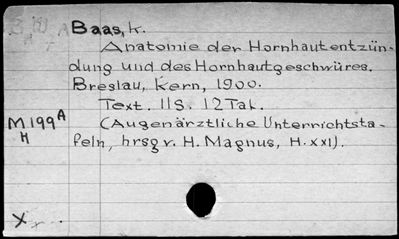 Baas, K.
Anatomie der Hornhautentzün-
dung und des Hornhautgeschwüres.
Breslau, Kern, 1900.
Text. 11 S. 12 Taf.
M199A
(Augenärztliche Unterrichtsta-
H
feln, hrsg v. H. Magnus, H. XXI).
X